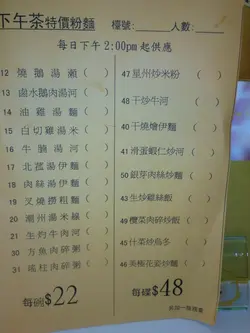 下午茶特價粉麵 檯號: 人數:
每日下午2:00pm起供應
12 燒鵝湯瀨 ( )
13 鹵水鵝肉湯河 ( )
14 油雞湯麵 ( )
15 白切雞湯米 ( )
16 牛腩湯河 ( )
17 北菰湯伊麵 ( )
18 肉絲湯伊麵 ( )
19 叉燒撈粗麵 ( )
20 潮州湯米線 ( )
21 生灼牛肉河 ( )
30 方魚肉碎粥 ( )
31 瑤柱肉碎粥 ( )
每碗$22
47 星州炒米粉 ( )
48 干炒牛河 ( )
40 干燒燴伊麵 ( )
41 滑蛋蝦仁炒河 ( )
50 銀芽肉絲炒麵 ( )
43 生炒雞絲飯 ( )
49 欖菜肉碎炒飯 ( )
45 什菜炒烏冬 ( )
46 美極花姿炒麵 ( )
每碟$48